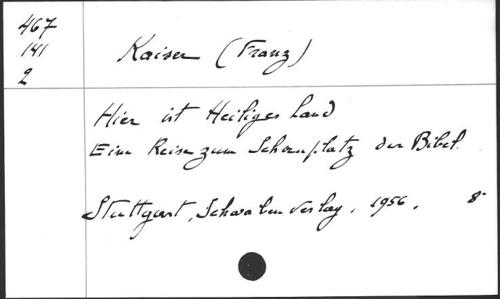 467
141
2
Kaiser (Franz)
Hier ist Heiliges Land
Eine Reise zum Schauplatz der Bibel.
Stuttgart, Schwabenverlag, 1956, 8°